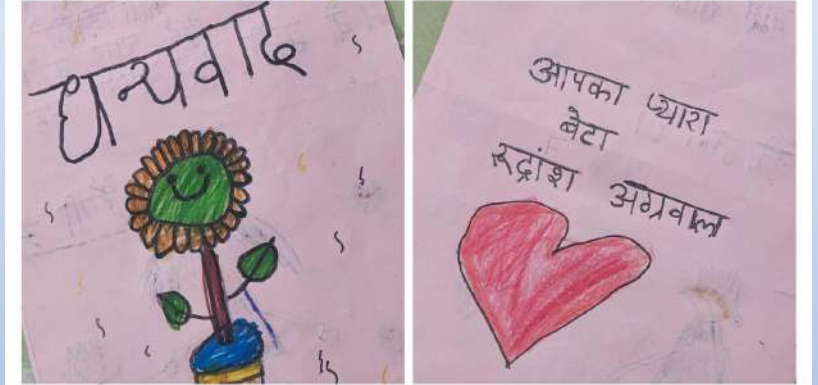 धन्यवाद
आपका प्यारा
बेटा
रूद्रांश अग्रवाल